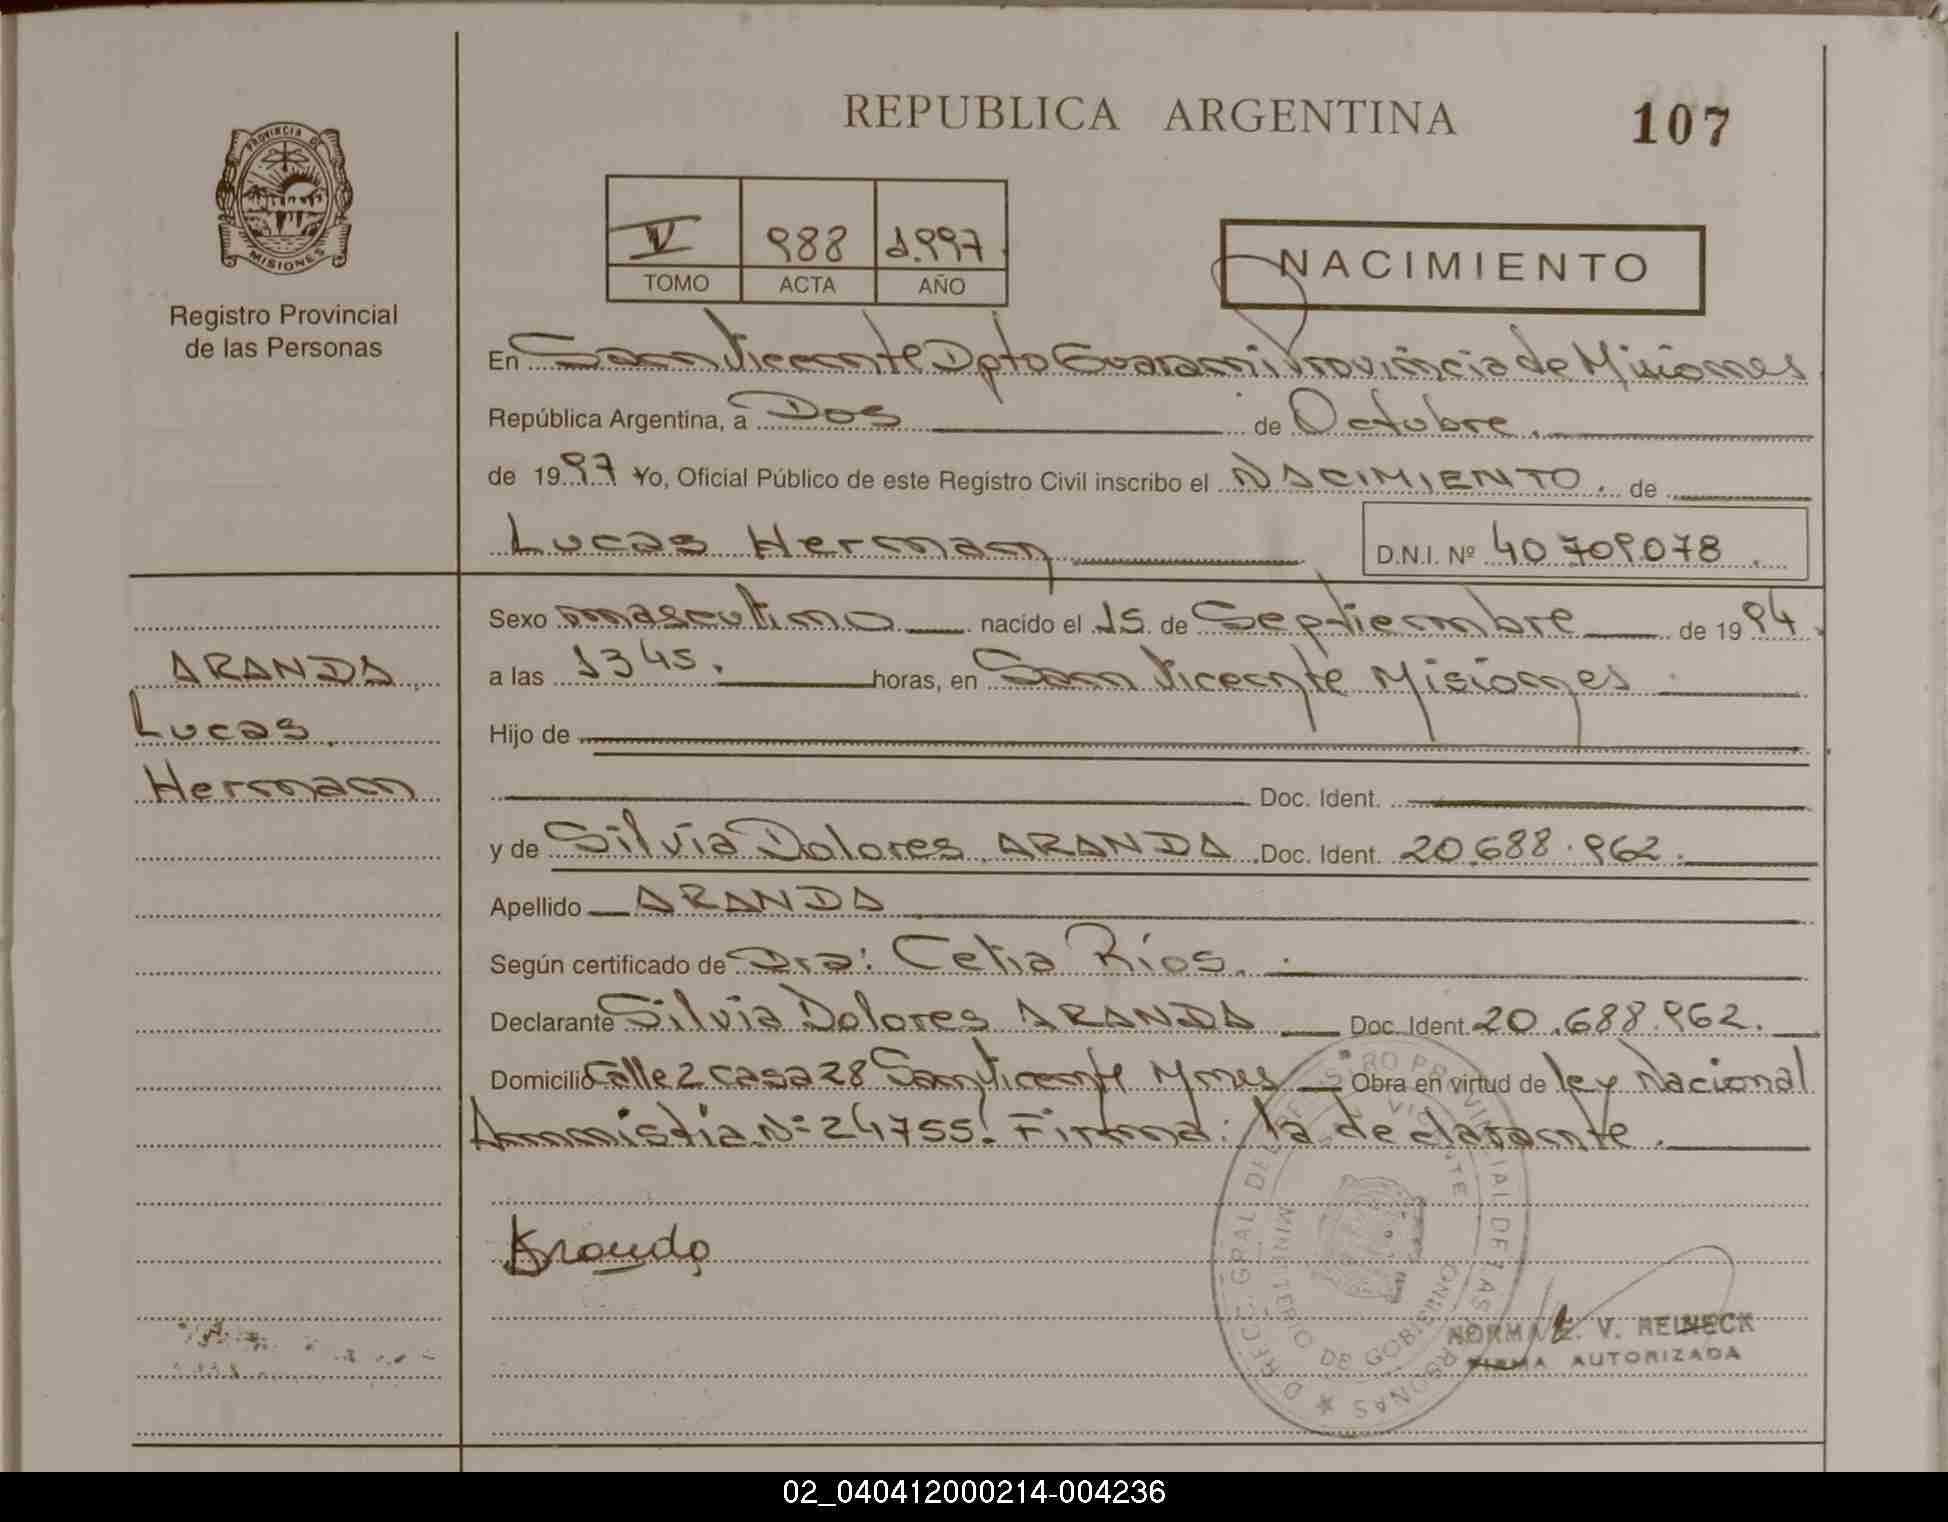 REPUBLICA ARGENTINA
107
PROVINCIA DE
MISIONES
Registro Provincial
de las Personas
V 988 1.997.
TOMO ACTA AÑO
NACIMIENTO
En San Vicente Dpto Guarani Provincia de Misiones
República Argentina, a Dos de Octubre.
de 1997 Yo, Oficial Público de este Registro Civil inscribo el NACIMIENTO. de
Lucas Hernan D.N.I. Nº 40.709.078.
Sexo masculino nacido el 15 de Septiembre de 1994.
a las 1345. horas, en San Vicente Misiones
Hijo de
Doc. Ident.
y de Silvia Dolores ARANDA. Doc. Ident. 20.688.962.
Apellido ARANDA
Según certificado de Dra: Celia Ríos.
Declarante Silvia Dolores ARANDA Doc. Ident. 20.688.962.
Domicilio Calle 2 casa 28 San Vicente Mnes Obra en virtud de ley Nacional
Amnistia Nº 24755. Firma: la declarante.
ARANDA
Lucas
Hernan
Aranda
DIRECC. GRAL DEL REGISTRO PROVINCIAL DE LAS PERSONAS
MINISTERIO DE GOBIERNO
VICENTE
NORMA E. V. REINECK
FIRMA AUTORIZADA
02_040412000214-004236